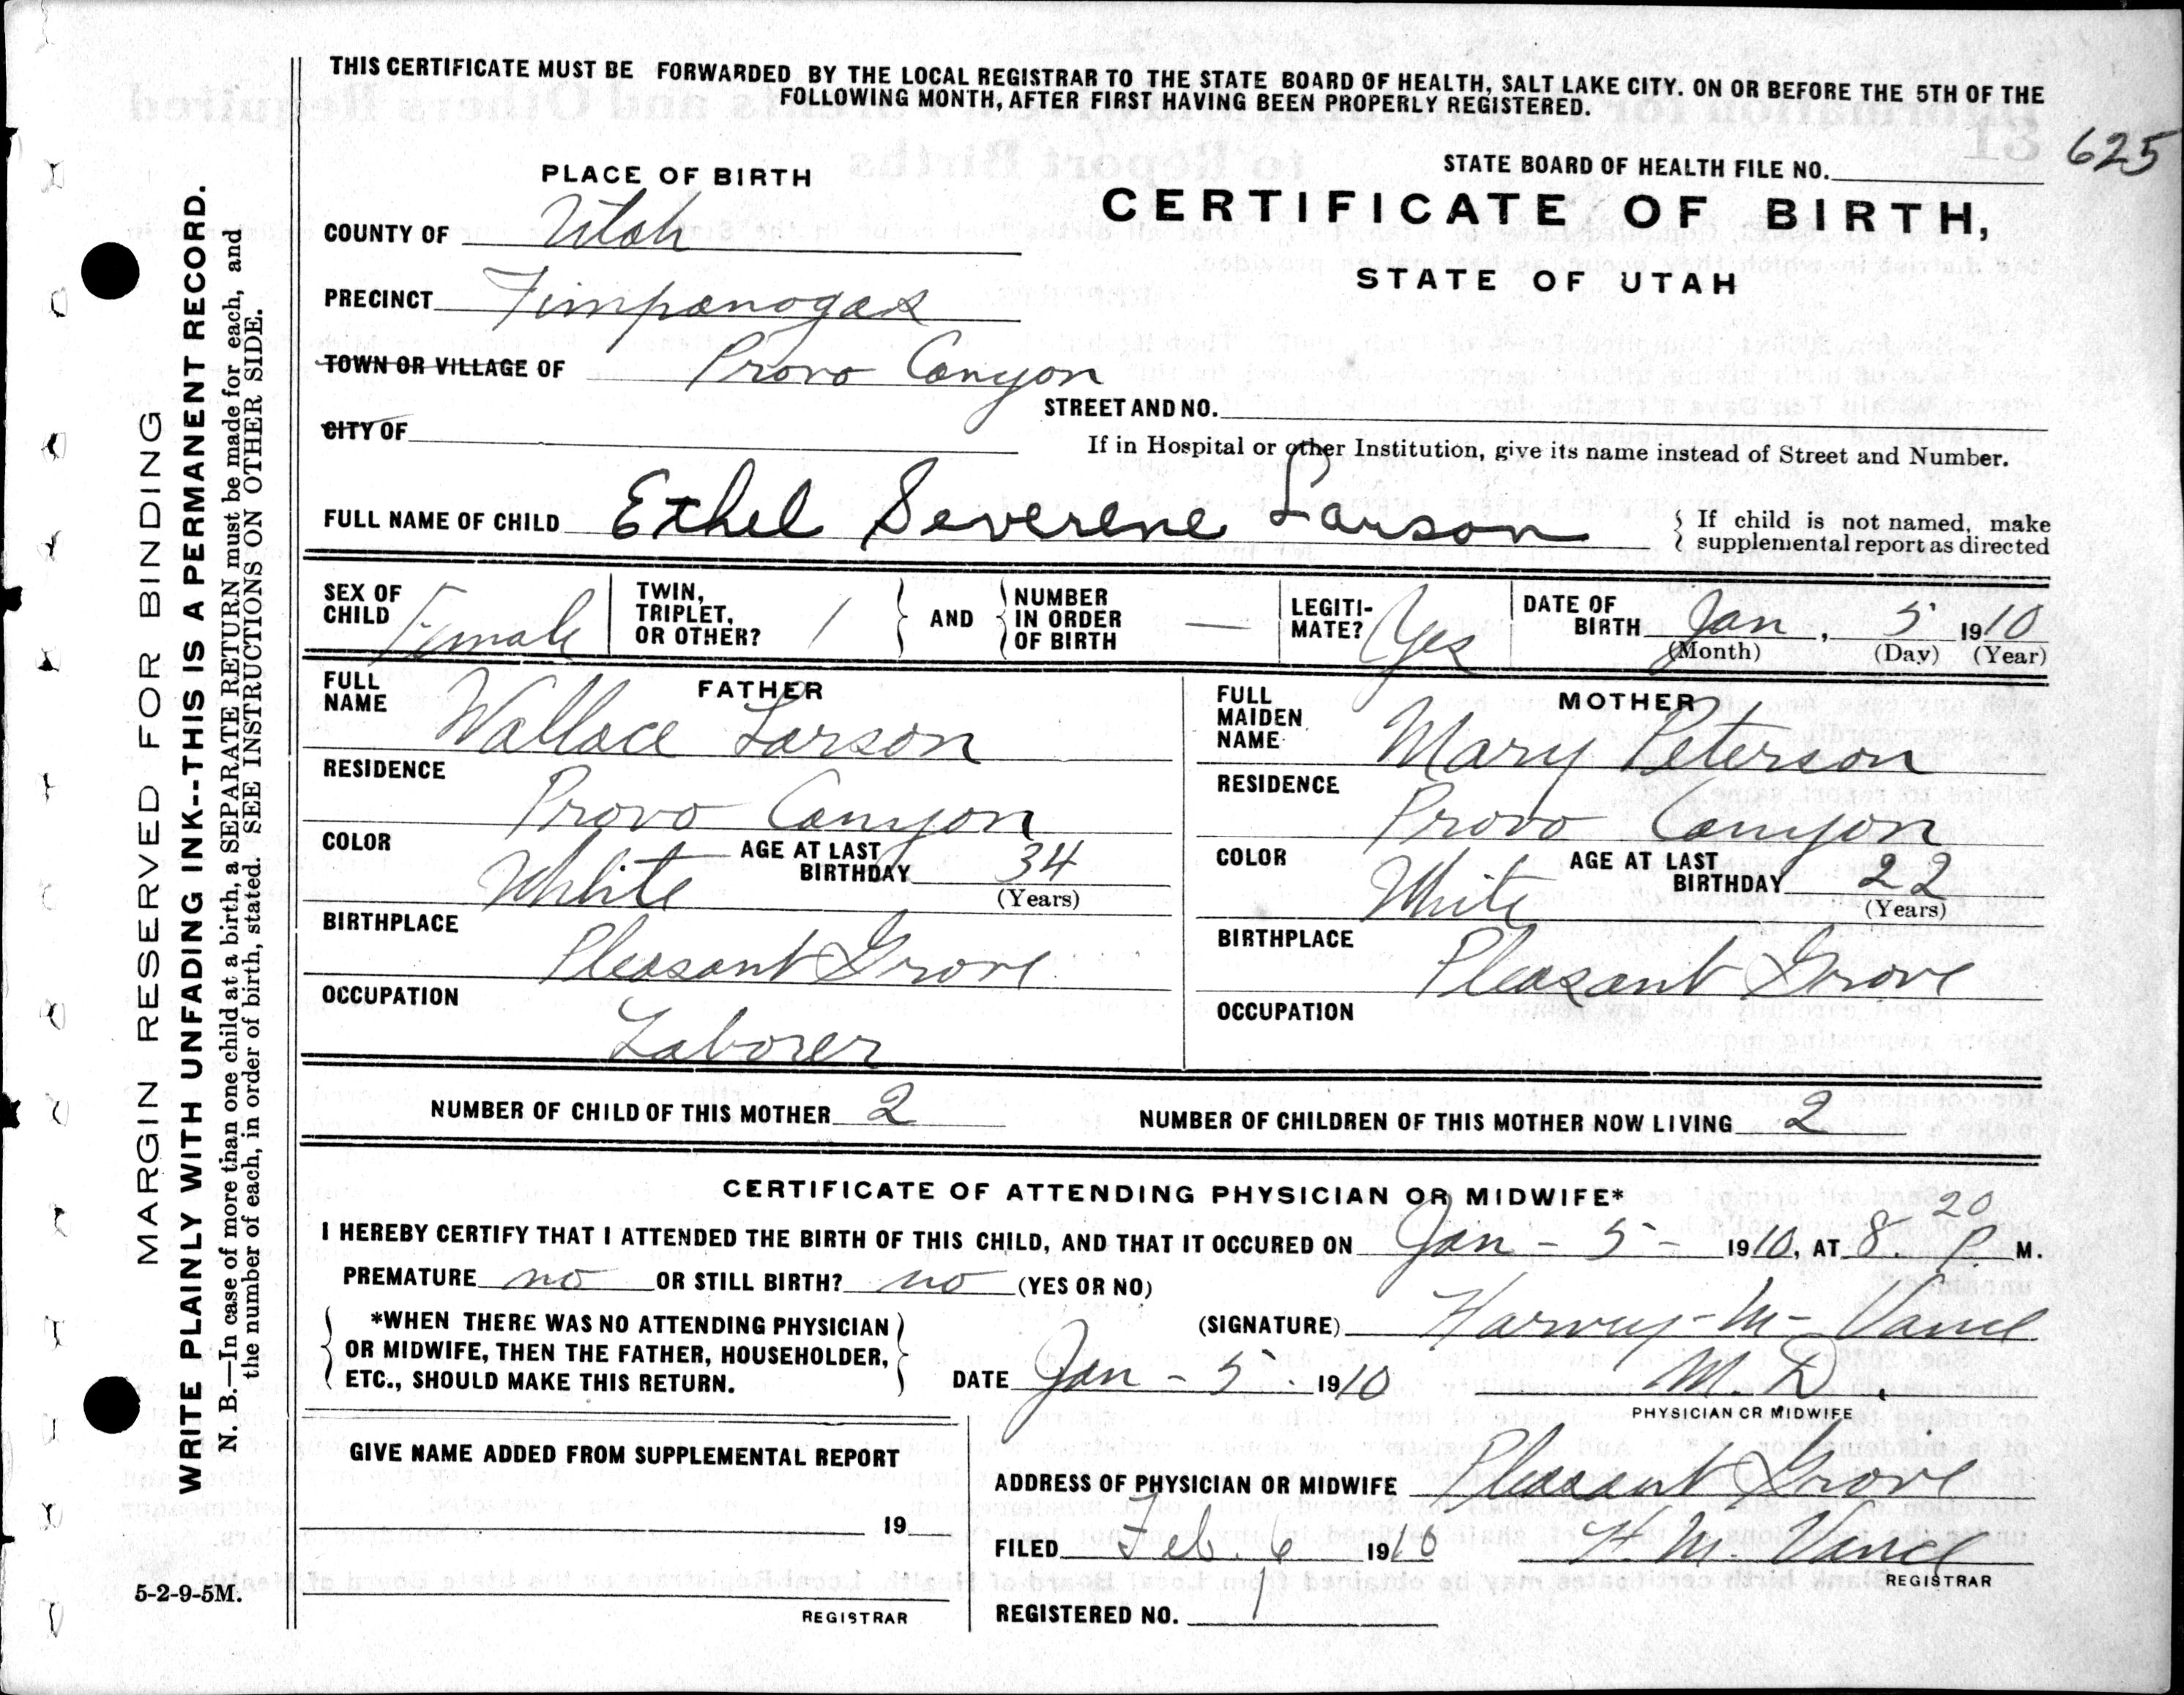 THIS CERTIFICATE MUST BE FORWARDED BY THE LOCAL REGISTRAR TO THE STATE BOARD OF HEALTH, SALT LAKE CITY. ON OR BEFORE THE 5TH OF THE
FOLLOWING MONTH, AFTER FIRST HAVING BEEN PROPERLY REGISTERED.
625
PLACE OF BIRTH
STATE BOARD OF HEALTH FILE NO.
CERTIFICATE OF BIRTH,
STATE OF UTAH
COUNTY OF Utah
PRECINCT Timpanogas
TOWN OR VILLAGE OF Provo Canyon
STREET AND NO.
CITY OF
If in Hospital or other Institution, give its name instead of Street and Number.
FULL NAME OF CHILD Ethel Severene Larson
If child is not named, make
supplemental report as directed
SEX OF CHILD Female
TWIN, TRIPLET, OR OTHER? 1
AND
NUMBER IN ORDER OF BIRTH —
LEGITI-MATE? Yes
DATE OF BIRTH Jan, 5 1910
(Month) (Day) (Year)
FATHER
FULL NAME Wallace Larson
RESIDENCE
Provo Canyon
COLOR White AGE AT LAST BIRTHDAY 34
(Years)
BIRTHPLACE
Pleasant Grove
OCCUPATION
Laborer
MOTHER
FULL MAIDEN NAME Mary Peterson
RESIDENCE
Provo Canyon
COLOR White AGE AT LAST BIRTHDAY 22
(Years)
BIRTHPLACE
Pleasant Grove
OCCUPATION
NUMBER OF CHILD OF THIS MOTHER 2
NUMBER OF CHILDREN OF THIS MOTHER NOW LIVING 2
CERTIFICATE OF ATTENDING PHYSICIAN OR MIDWIFE*
I HEREBY CERTIFY THAT I ATTENDED THE BIRTH OF THIS CHILD, AND THAT IT OCCURED ON Jan - 5 - 1910, AT 8.20 P. M.
PREMATURE no OR STILL BIRTH? no (YES OR NO)
*WHEN THERE WAS NO ATTENDING PHYSICIAN
OR MIDWIFE, THEN THE FATHER, HOUSEHOLDER,
ETC., SHOULD MAKE THIS RETURN.
(SIGNATURE) Harvey - M -
DATE Jan - 5 - 1910 M. D.
PHYSICIAN OR MIDWIFE
GIVE NAME ADDED FROM SUPPLEMENTAL REPORT
19
REGISTRAR
ADDRESS OF PHYSICIAN OR MIDWIFE Pleasant Grove
FILED Feb. 6 1910 H. M.
REGISTRAR
REGISTERED NO. 1
MARGIN RESERVED FOR BINDING
WRITE PLAINLY WITH UNFADING INK--THIS IS A PERMANENT RECORD.
N. B.—In case of more than one child at a birth, a SEPARATE RETURN must be made for each, and
the number of each, in order of birth, stated. SEE INSTRUCTIONS ON OTHER SIDE.
5-2-9-5M.